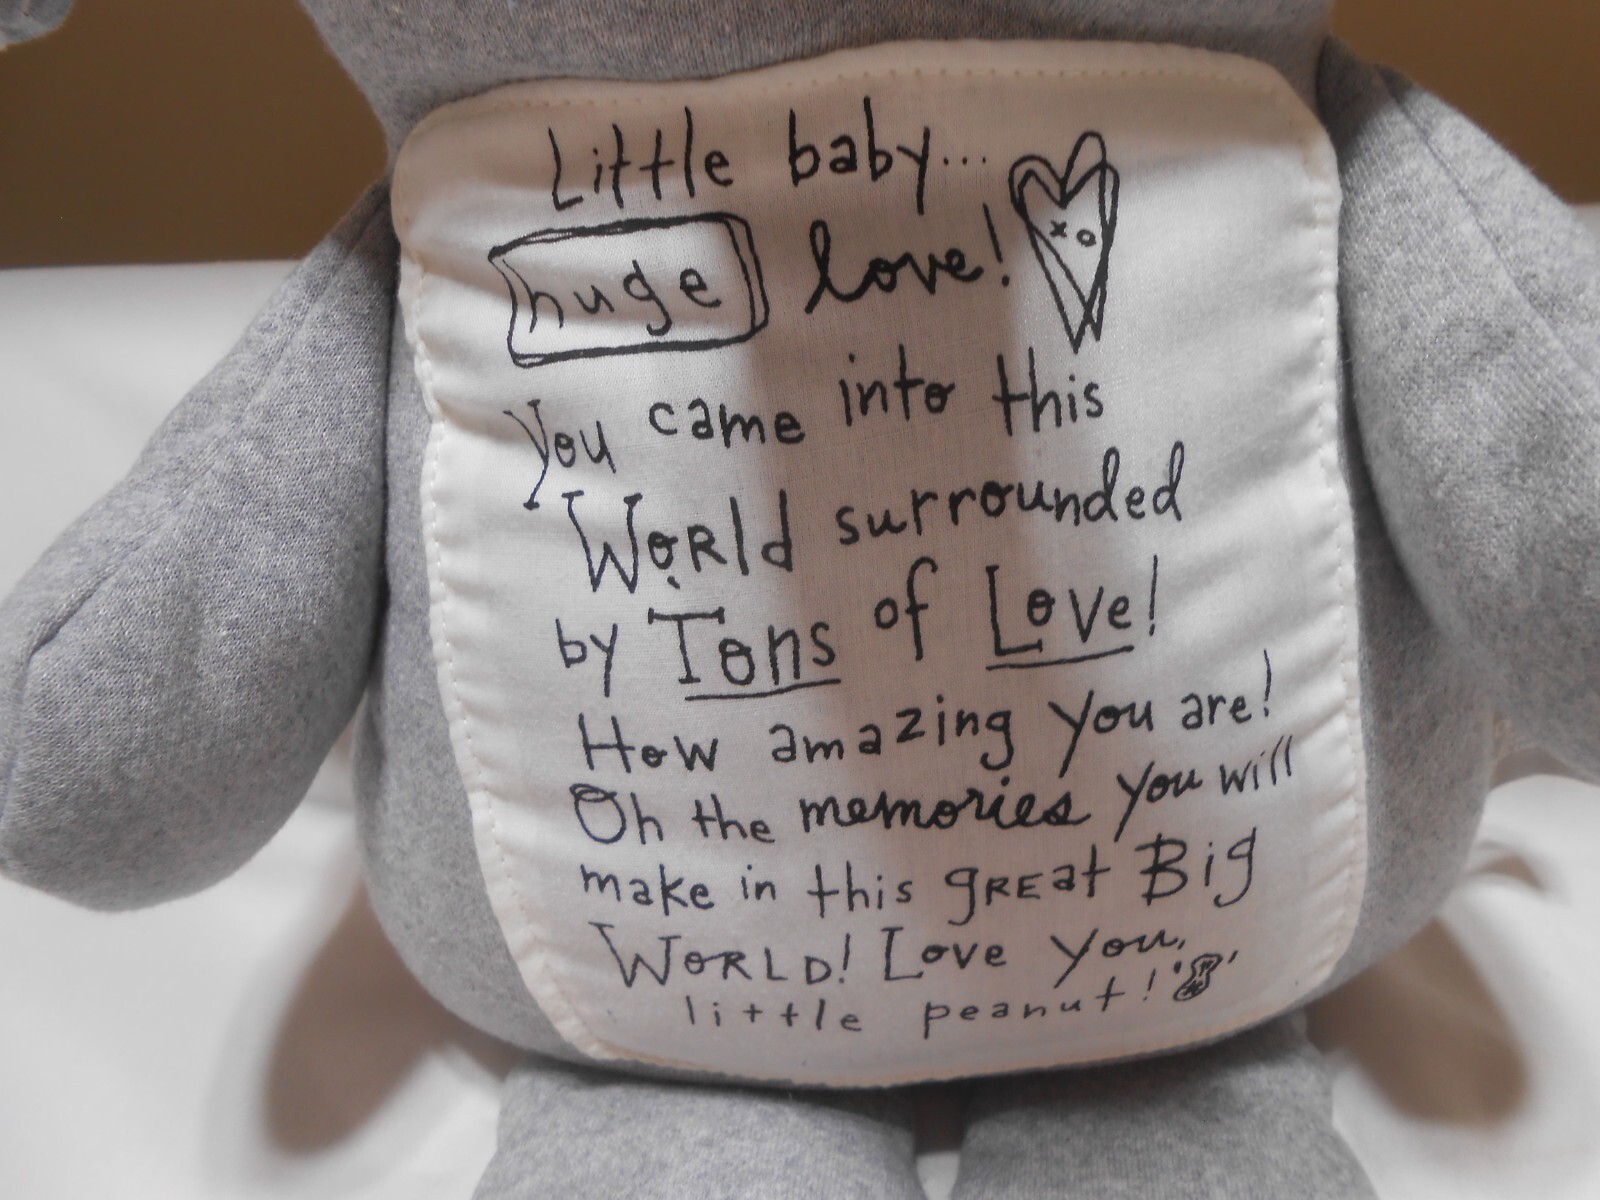 Little baby...
huge love!
x o
You came into this
World surrounded
by Tons of Love!
How amazing you are!
Oh the memories you will
make in this gREat Big
WORLD! Love you,
little peanut!